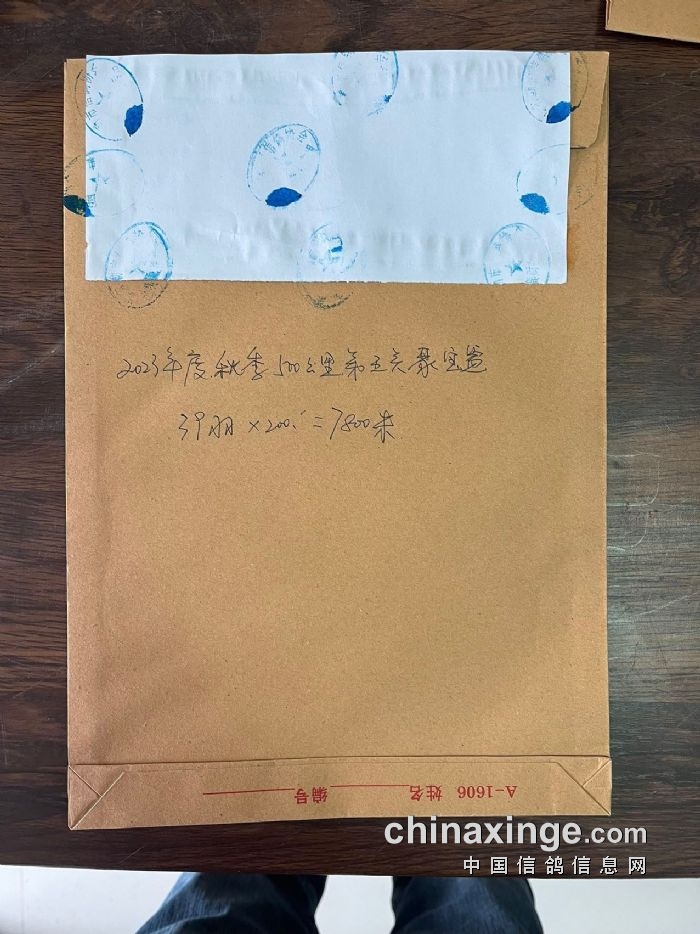 2023年度秋季500公里第五关
39羽 × 200.- = 7800
A-1606 姓名 编号
chinaxinge.com
中国信鸽信息网